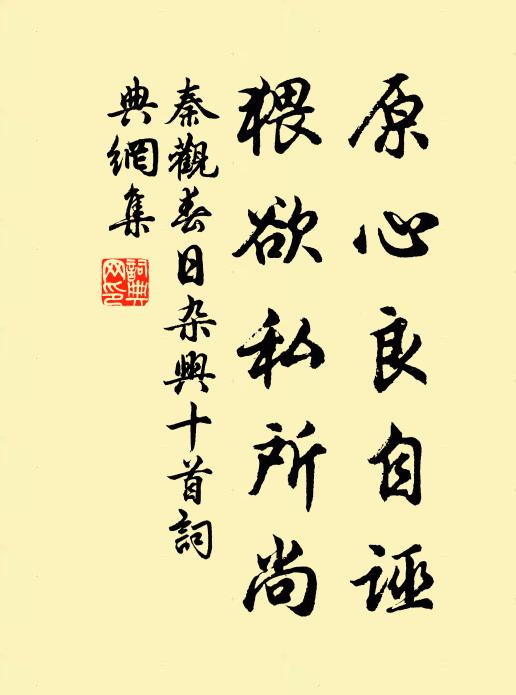 原心良自誣
猥欲私所尚
秦觀春日杂興十首詞
典網集
詞典
网印